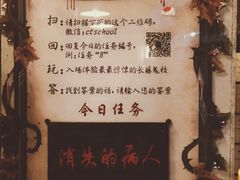 扫:请扫描下方的这个二维码,
微信:ctschool
回:回复今日的任务编号,
例:任务"8"
玩:入场体验最最惊悚的长藤鬼校
答:找到答案的话,请输入您的答案
今日任务
消失的病人